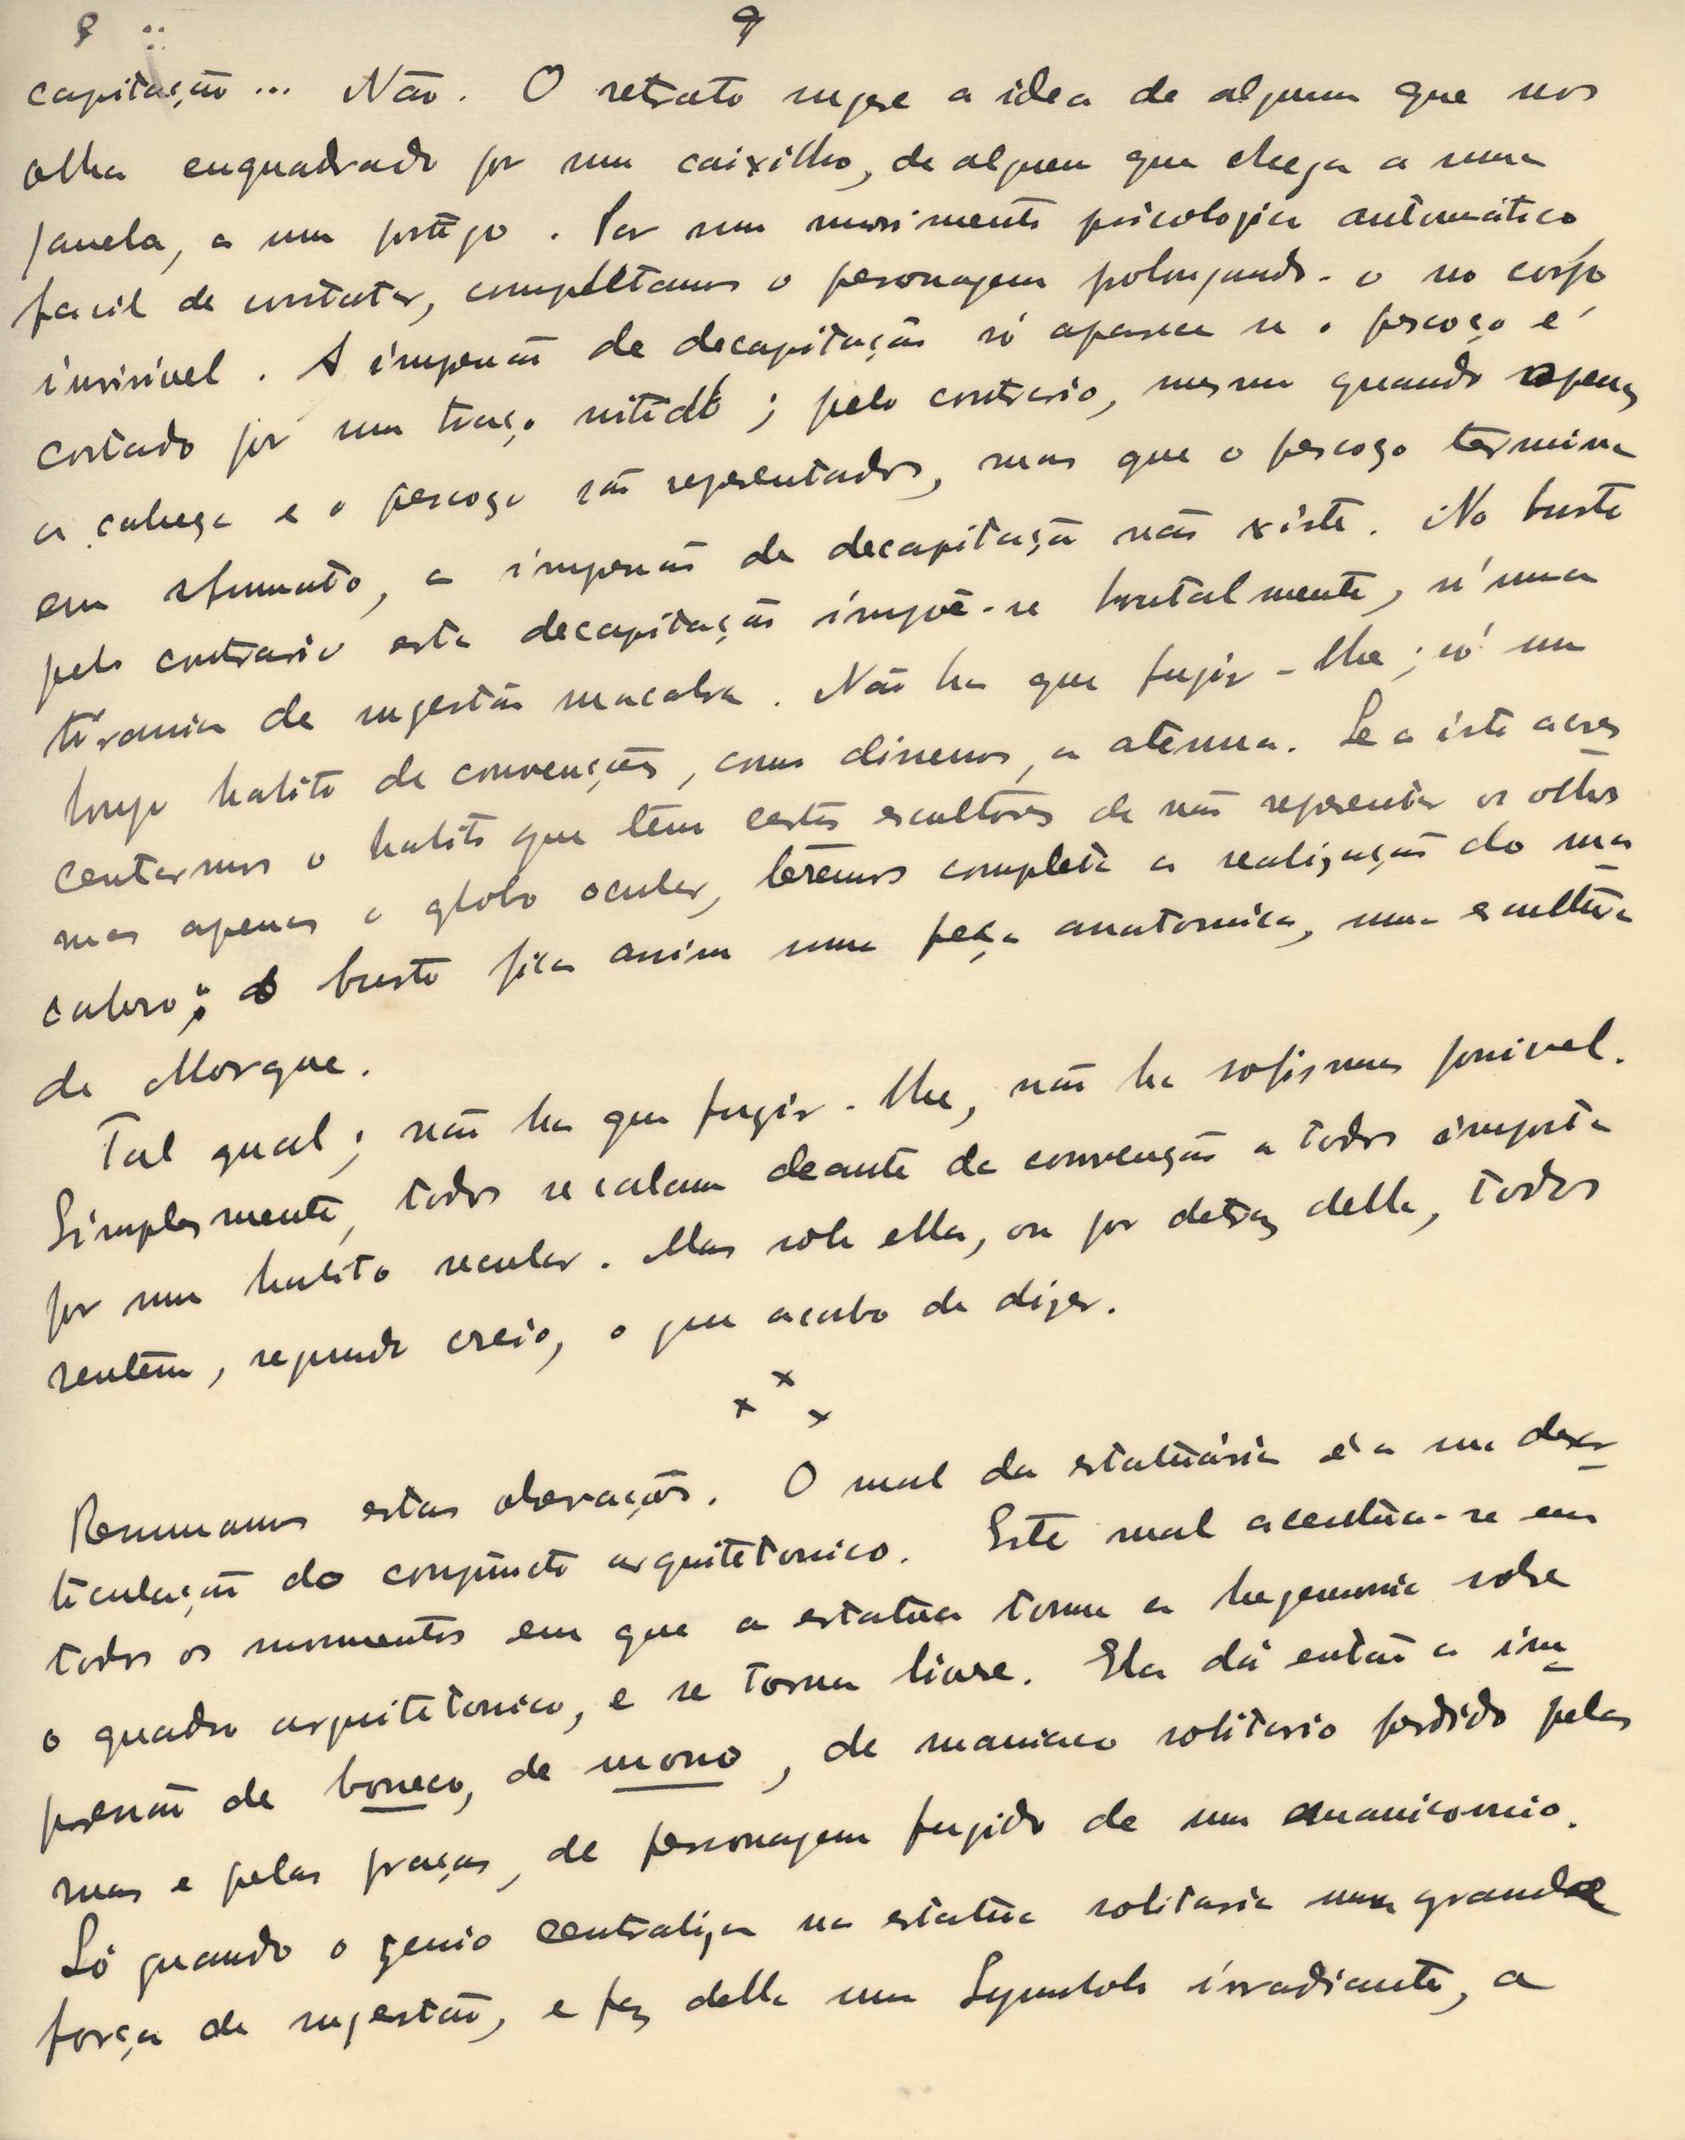 9
capitação... Não. O retrato sugere a idea de alguem que nos
olha enquadrado por um caixilho, de alguem que chega a uma
janela, a um postigo. Por um movimento psicologico automático,
facil de constatar, completamos o personagem prolongando-o no corpo
invisivel. A impressão de decapitação só aparece se o pescoço é
cortado por um traço nitido; pelo contrario, mesmo quando apenas
a cabeça e o pescoço são representados, mas que o pescoço termina
em sfumato, a impressão de decapitação não existe. No busto
pelo contrario esta decapitação impõe-se brutalmente, n'uma
tirania de sugestão macabra. Não ha que fugir-lhe; só um
longo habito de convenções, como dissemos, a atenua. Se a isto acres
centarmos o habito que têm certos escultores de não representar os olhos
mas apenas o globo ocular, teremos completa a realização do ma
cabro; o busto fica assim uma peça anatomica, uma escultura
de Morgue.
Tal qual; não ha que fugir-lhe, não ha sofisma possivel.
Simplesmente, todos se calam deante da convenção a todos imposta
por um habito secular. Mas sob ella, ou por detraz della, todos
sentem, segundo creio, o que acabo de dizer.
x x x
Resumamos estas observações. O mal da estatuária é a sua desar
ticulação do conjuncto arquitetonico. Este mal acentua-se em
todos os monumentos em que a estatua toma a hegemonia sobre
o quadro arquitetonico, e se torna livre. Ela dá então a im
pressão de boneco, de mono, de maniaco solitario perdido pelas
ruas e pelas praças, de personagem fugido de um manicomio.
Só quando o genio centraliza na estatua solitaria uma grande
força de sugestão, e faz della um Symbolo irradiante, a